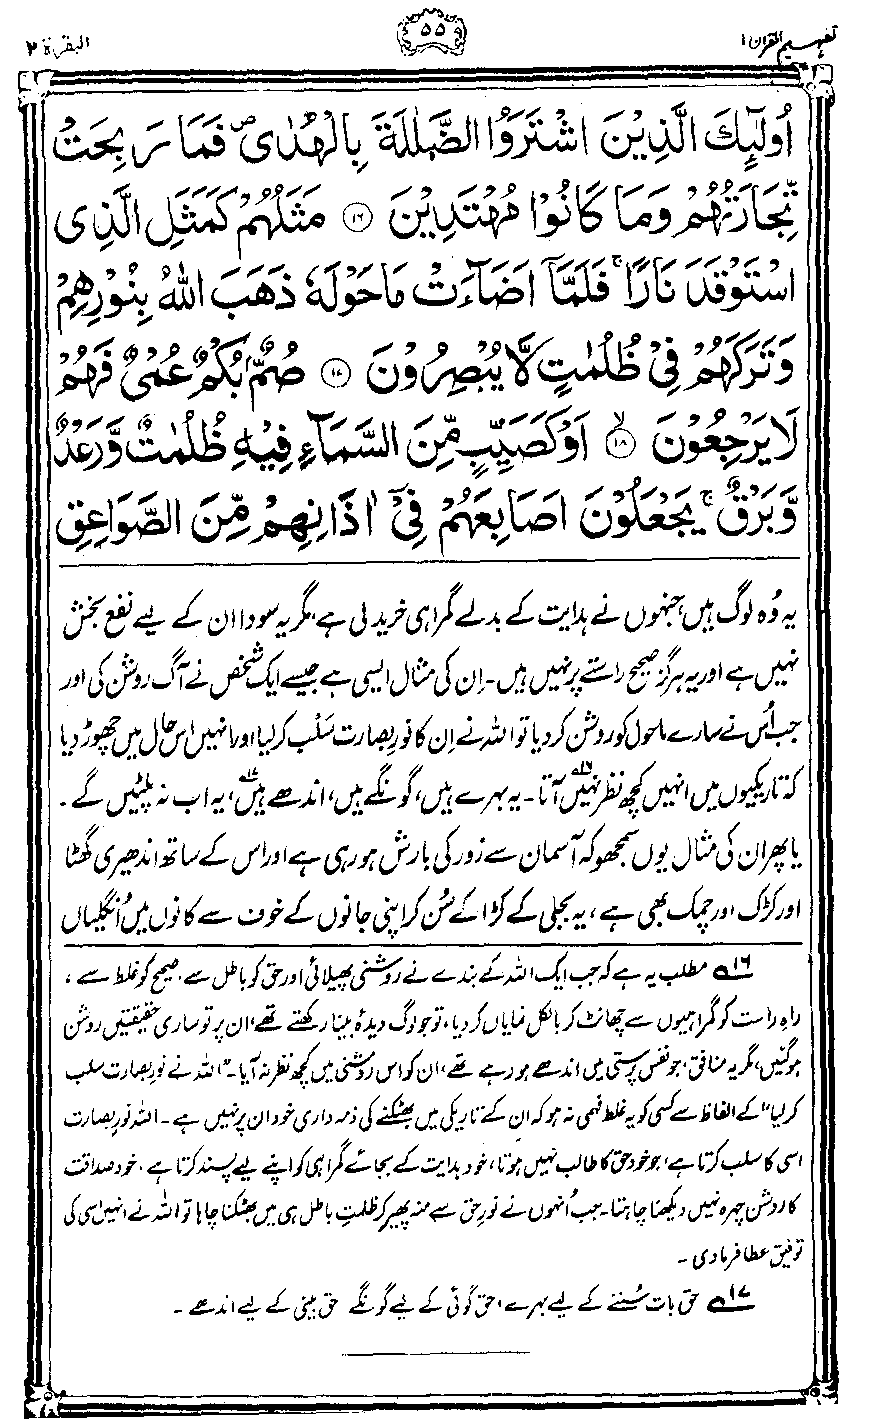 تفہیم القرآن ۱
۵۵
البقرۃ ۲
أُولَٰٓئِكَ الَّذِيۡنَ اشۡتَرَوُا الضَّلٰلَةَ بِالۡهُدٰىۖ فَمَا رَبِحَتۡ
تِّجَارَتُهُمۡ وَمَا كَانُوۡا مُهۡتَدِيۡنَ ﴿۱۶﴾ مَثَلُهُمۡ كَمَثَلِ الَّذِى
اسۡتَوۡقَدَ نَارًاۚ فَلَمَّآ اَضَآءَتۡ مَا حَوۡلَهٗ ذَهَبَ اللّٰهُ بِنُوۡرِهِمۡ
وَتَرَكَهُمۡ فِىۡ ظُلُمٰتٍ لَّا يُبۡصِرُوۡنَ ﴿۱۷﴾ صُمٌّۢ بُكۡمٌ عُمۡىٌ فَهُمۡ
لَا يَرۡجِعُوۡنَ ﴿۱۸﴾ۙ اَوۡ كَصَيِّبٍ مِّنَ السَّمَآءِ فِيۡهِ ظُلُمٰتٌ وَّرَعۡدٌ
وَّبَرۡقٌۚ يَجۡعَلُوۡنَ اَصَابِعَهُمۡ فِىۡٓ اٰذَانِهِمۡ مِّنَ الصَّوَاعِقِ
یہ وُہ لوگ ہیں جنہوں نے ہدایت کے بدلے گمراہی خرید لی ہے، مگر یہ سودا ان کے لیے نفع بخش
نہیں ہے اور یہ ہرگز صحیح راستے پر نہیں ہیں۔ اِن کی مثال ایسی ہے جیسے ایک شخص نے آگ روشن کی اور
جب اُس نے سارے ماحول کو روشن کر دیا تو اللہ نے اِن کا نورِ بصارت سَلب کر لیا اور انہیں اس حال میں چھوڑ دیا
کہ تاریکیوں میں انہیں کچھ نظر نہیں آتا۱۶۔ یہ بہرے ہیں، گونگے ہیں، اندھے ہیں۱۷، یہ اب نہ پلٹیں گے۔
یا پھر ان کی مثال یوں سمجھو کہ آسمان سے زور کی بارش ہو رہی ہے اور اس کے ساتھ اندھیری گھٹا
اور کڑک اور چمک بھی ہے، یہ بجلی کے کڑاکے سُن کر اپنی جانوں کے خوف سے کانوں میں اُنگلیاں
۱۶؎ مطلب یہ ہے کہ جب ایک اللہ کے بندے نے روشنی پھیلائی اور حق کو باطل سے، صحیح کو غلط سے،
راہِ راست کو گمراہیوں سے چھانٹ کر بالکل نمایاں کر دیا، تو جو لوگ دیدۂ بینا رکھتے تھے، ان پر تو ساری حقیقتیں روشن
ہو گئیں، مگر یہ منافق، جو نفس پرستی میں اندھے ہو رہے تھے، ان کو اس روشنی میں کچھ نظر نہ آیا۔ ”اللہ نے نورِ بصارت سلب
کر لیا“ کے الفاظ سے کسی کو یہ غلط فہمی نہ ہو کہ ان کے تاریکی میں بھٹکنے کی ذمہ داری خود ان پر نہیں ہے۔ اللہ نورِ بصارت
اسی کا سلب کرتا ہے، جو خود حق کا طالب نہیں ہوتا، خود ہدایت کے بجائے گمراہی کو اپنے لیے پسند کرتا ہے، خود صداقت
کا روشن چہرہ نہیں دیکھنا چاہتا۔ جب اُنھوں نے نورِ حق سے منہ پھیر کر ظلمتِ باطل ہی میں بھٹکنا چاہا تو اللہ نے انہیں اسی کی
توفیق عطا فرما دی۔
۱۷؎ حق بات سُننے کے لیے بہرے، حق گوئی کے لیے گونگے، حق بینی کے لیے اندھے۔